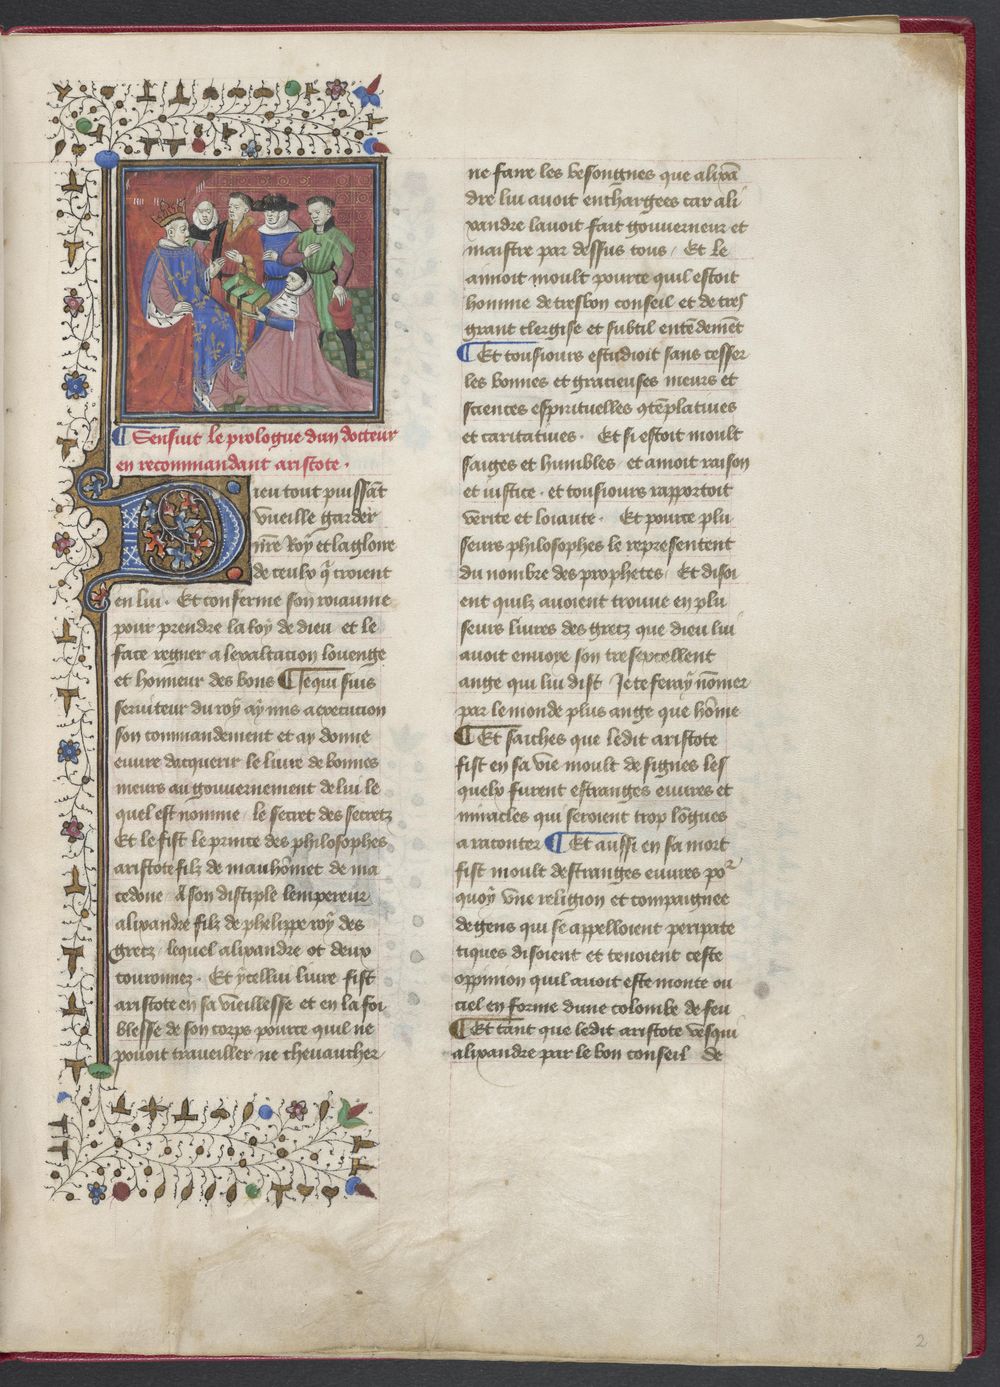 Sensuit le prologue dun docteur
en recommandant aristote.
Dieu tout puissāt
vueille garder
nr̄e Roy et la gloire
de ceulx q̄ croient
en lui. Et conferme son roiaume
pour prendre la loy de dieu et le
face regner a lexaltacion louenge
et honneur des bons Je qui suis
seruiteur du roy ay mis a execucion
son commandement et ay donne
euure dacquerir le liure de bonnes
meurs au gouuernement de lui le
quel est nomme le secret des secretz
Et le fist le prince des philosophes
aristote filz de mauhōmet de ma
cedone A son disciple lempereur
alixandre filz de phelippe roy des
grecz lequel alixandre ot deux
couronnez. Et ycellui liure fist
aristote en sa vieillesse et en la foi
blesse de son corps pource quil ne
pouoit traueiller ne cheuaucher
ne faire les besongnes que alixā
dre lui auoit enchargees car ali
xandre lauoit fait gouuerneur et
maistre par dessus tous Et le
amoit moult pource quil estoit
homme de tresbon conseil et de tres
grant clergise et subtil entēdemēt
Et tousiours estudioit sans cesser
les bonnes et gracieuses meurs et
sciences espirituelles 9tēplatiues
et caritatiues. Et si estoit moult
saiges et humbles et amoit raison
et iustice. et tousiours rapportoit
verite et loiaute. Et pource plu
seurs philosophes le representent
du nombre des prophetes Et disoi
ent quilz auoient trouue en plu
seurs liures des grecz que dieu lui
auoit enuoye son tresexcellent
ange qui lui dist Je te feray nōmer
par le monde plus ange que hōme
Et saiches que ledit aristote
fist en sa vie moult de signes les
quelx furent estranges euures et
miracles qui seroient trop lōgues
a raconter Et aussi en sa mort
fist moult destranges euures poʳ
quoy vne religion et compaignee
de gens qui se appelloient peripate
tiques disoient et tenoient ceste
oppinion quil auoit este monte ou
ciel en forme dune colombe de feu
Et tant que ledit aristote vesqui
alixandre par le bon conseil de
2